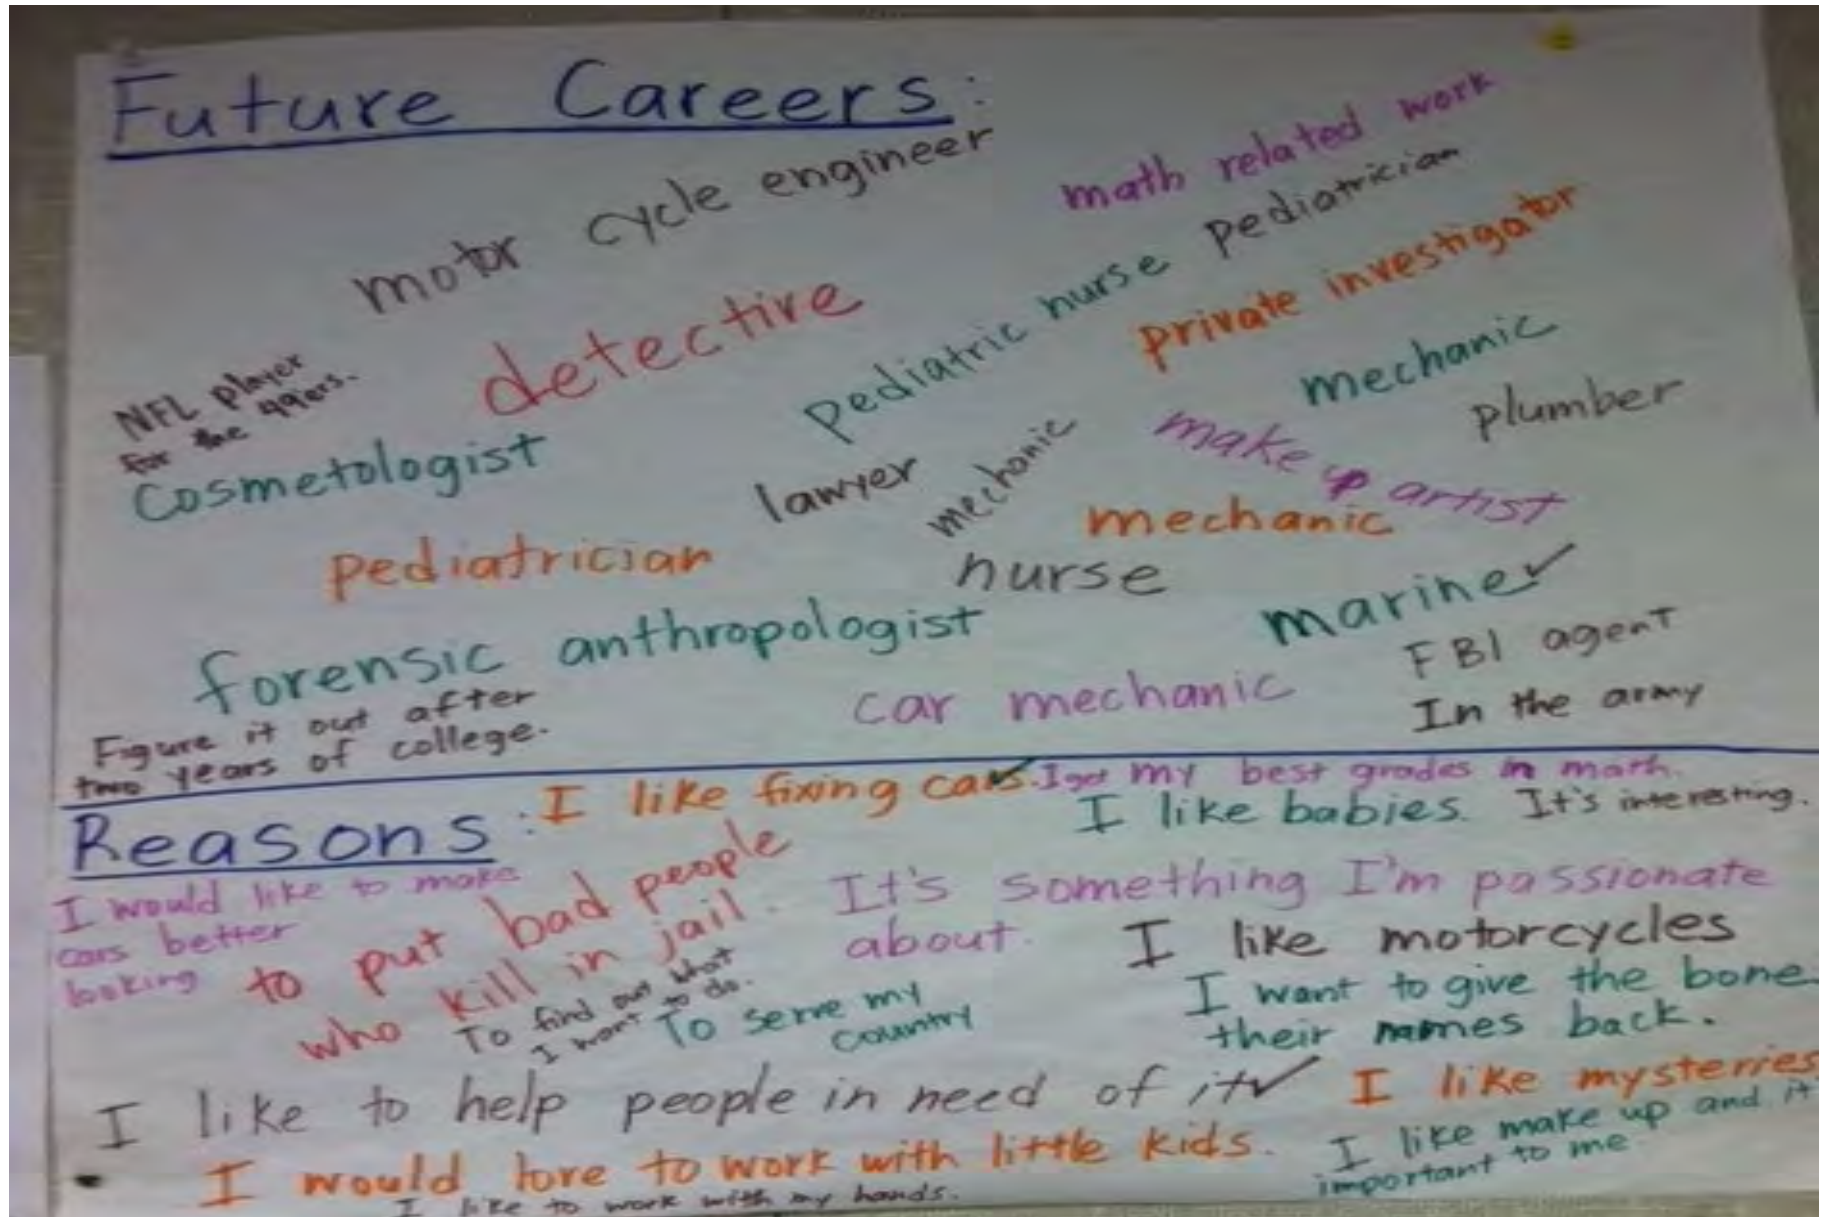 Future Careers:
motor cycle engineer
math related work
pediatrician
detective
pediatric nurse
private investigator
NFL player
for the 49ers.
mechanic
plumber
Cosmetologist
lawyer
mechanic
make up artist
mechanic
pediatrician
nurse
marine✓
forensic anthropologist
FBI agent
car mechanic
In the army
Figure it out after
two years of college.
Reasons:
I like fixing cars.
I get my best grades in math.
I like babies.
It's interesting.
I would like to make
cars better
looking
to put bad people
who kill in jail.
It's something I'm passionate
about.
I like motorcycles
To find out what
I want to do.
To serve my
country
I want to give the bone
their names back.
I like to help people in need of it✓
I like mysterries
I would love to work with little kids.
I like make up and it
important to me
I like to work with my hands.